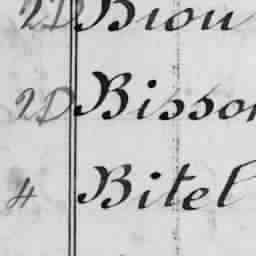 2D Biou
2D Bisson
4 Bitel